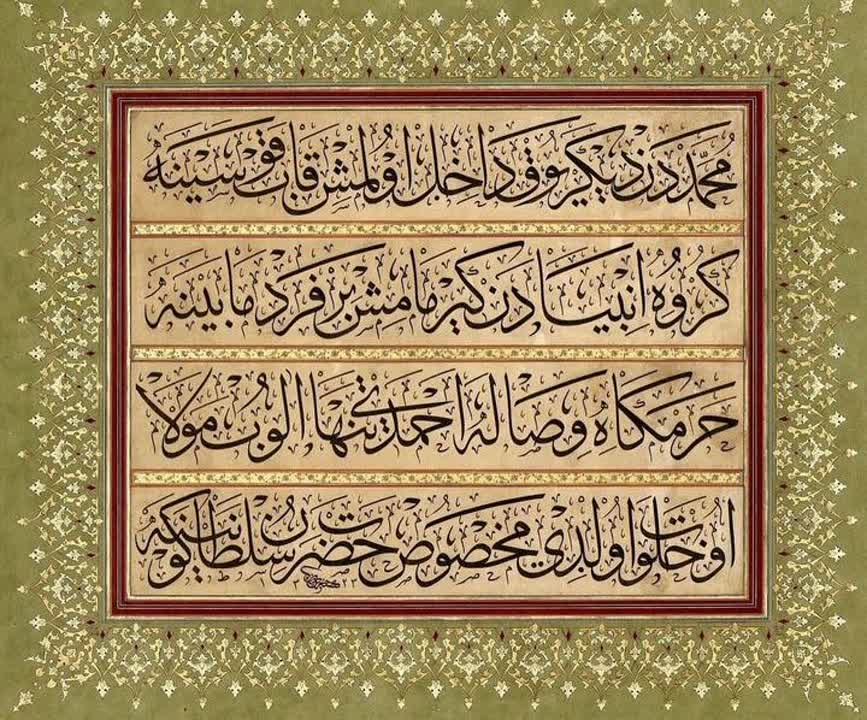 محمّددن ديكر يوق داخل اولمش قاب قوسينه
كروه انبيادن كيرمامش بر فرد مابينه
حرمكاه وصاله احمدي تنها الوب مولا
او خلوت اولدي مخصوص حضرت سلطان كونينه